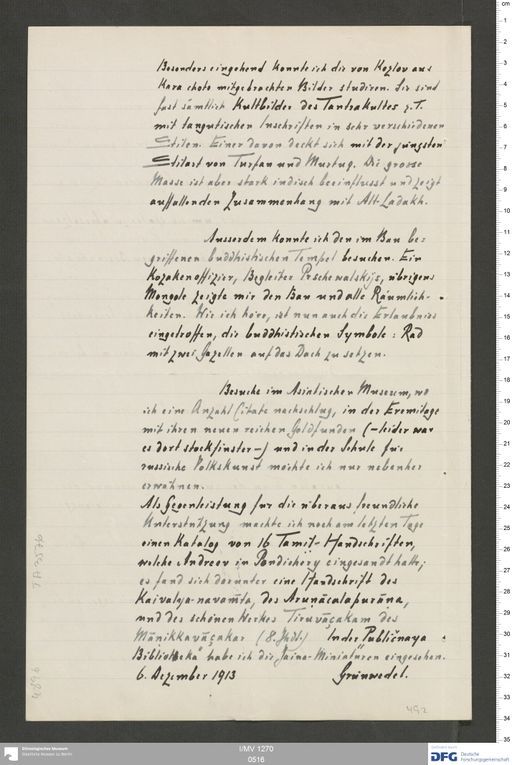 Besonders eingehend konnte ich die von Kozlov aus
Kara choto mitgebrachten Bilder studiren. Sie sind
fast sämtlich Kultbilder des Tantrakultes z.T.
mit tangutischen Inschriften in sehr verschiedenen
Stilen. Einer davon deckt sich mit der jüngsten
Stilart von Turfan und Murtuq. Die grosse
Masse ist aber stark indisch beeinflusst und zeigt
auffallenden Zusammenhang mit Alt-Ladakh.
Ausserdem konnte ich den im Bau be=
griffenen buddhistischen Tempel besuchen. Ein
Kozakenoffizier, Begleiter Prschewalskijs, übrigens
Mongole zeigte mir den Bau und alle Räumlich-
keiten. Wie ich höre, ist nun auch die Erlaubniss
eingetroffen, die buddhistischen Symbole: Rad
mit zwei Gazellen auf das Dach zu setzen.
Besuche im Asiatischen Museum, wo
ich eine Anzahl Citate nachschlug, in der Eremitage
mit ihren neuen reichen Goldfunden (-leider war
es dort stockfinster-) und in der Schule für
russische Volkskunst möchte ich nur nebenher
erwähnen.
Als Gegenleistung für die überaus freundliche
Unterstützung machte ich noch am letzten Tage
einen Katalog von 16 Tamil-Handschriften,
welche Andreev in Pondichery eingesandt hatte;
es fand sich darunter eine Handschrift des
Kaivalya-navanīta, des Aruṇācalapurāna,
und des schönen Werkes Tiruvāçakam des
Mānikkavāçakar (8. Jhdt.) In der Publičnaya
Biblioteka habe ich die Jaina-Miniatüren eingesehen.
6. Dezember 1913 Grünwedel.
492
Ethnologisches Museum
Staatliche Museen zu Berlin
I/MV 1270
0516
gefördert durch
DFG Deutsche
Forschungsgemeinschaft